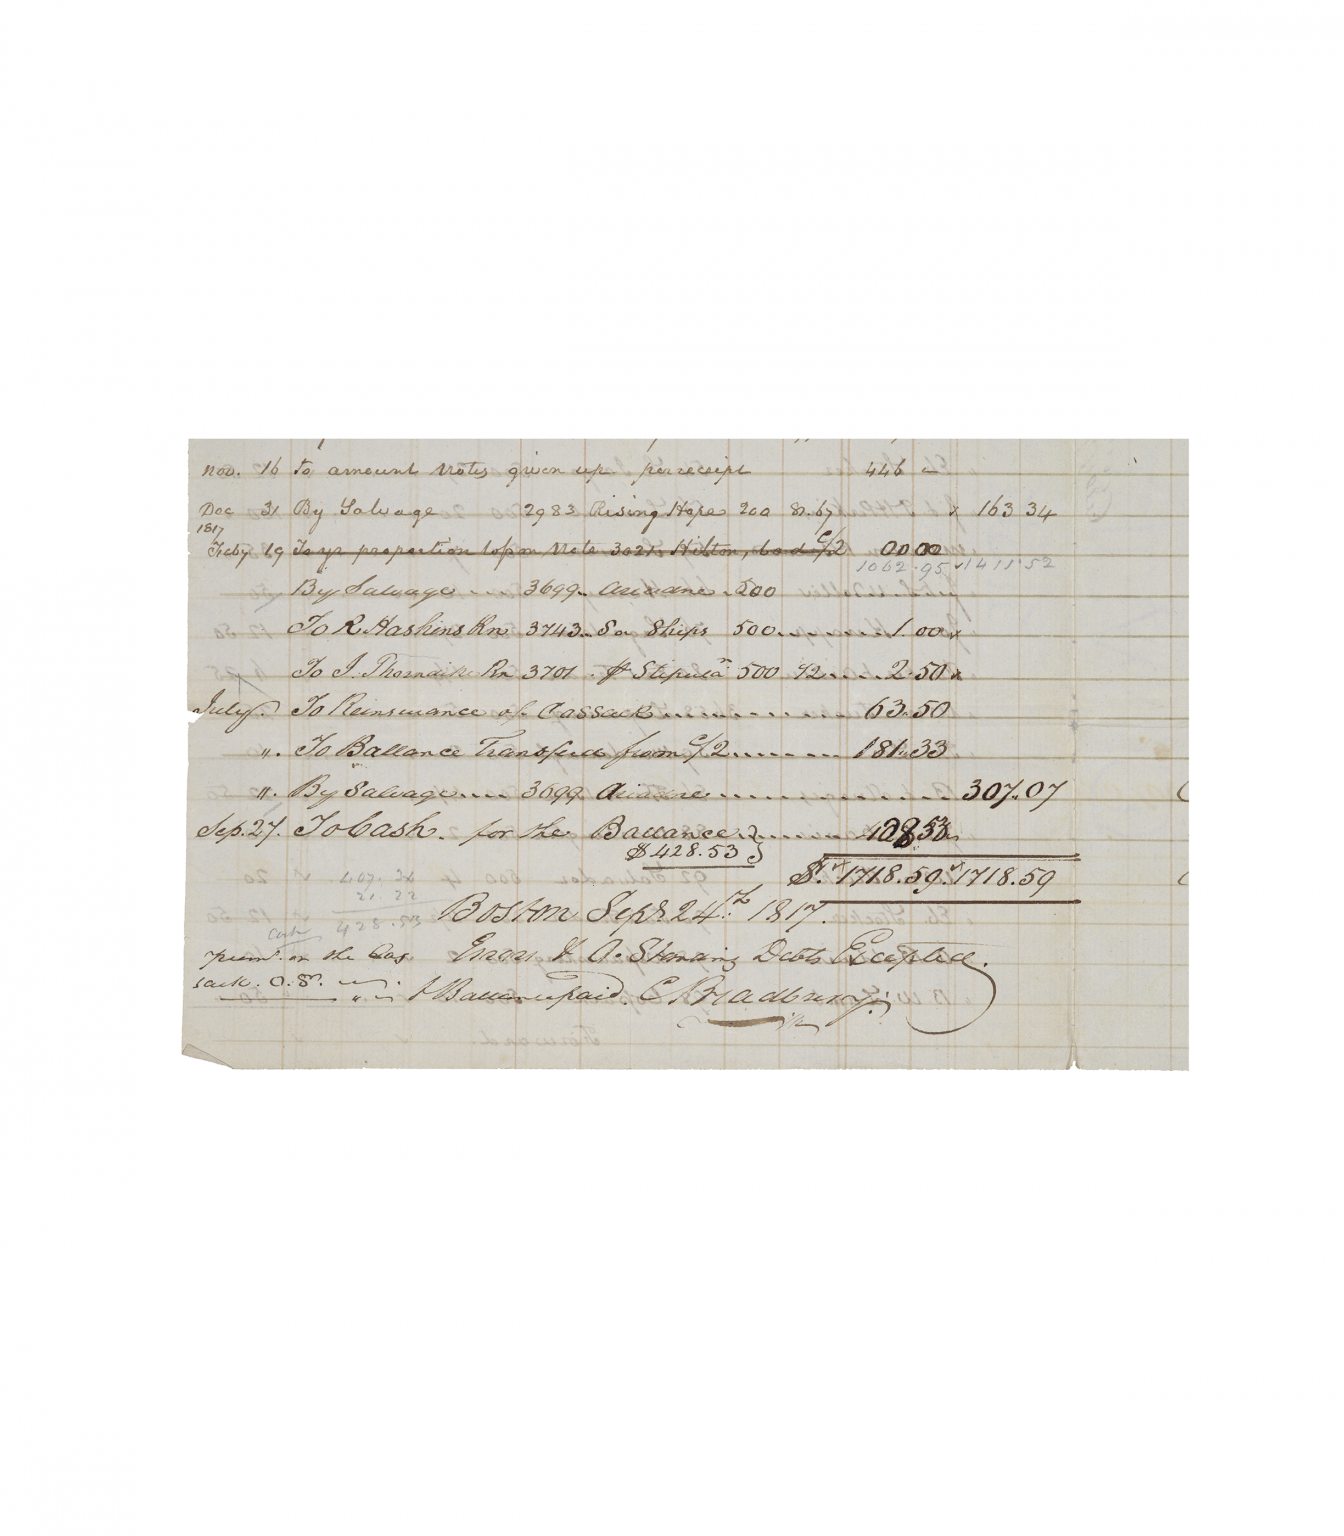 Nov. 16 To amount Notes given up per receipt 446 –
Dec 31 By Salvage 2983 Rising Hope 200 81.67 x 163 34
1817
Feby 19 To yr proportion loss on Note 3021 Hilton, bad c/2 00 00
1062.95 1411.52
By Salvage 3699 Ariadne 500
To R. Haskins Rn 3743 Sa Ships 500 1.00 x
To I. Thorndike Rn 3701 Stipula 500 1/2 2.50 x
July To Reinsurance of Cossack 63.50
". To Ballance Transferd from c/2 181.33
". By Salvage 3699 Ariadne 307.07
Sep. 27. To Cash. for the Ballance 428 53
$428.53
$. 1718.59. 1718.59
407.31
21.22
428.53
Cash
Boston Sept 24th 1817.
prem. on the Cos Errors & O. Standing Debts Excepted.
sack. O.S. " Ballance paid. C Bradbury.